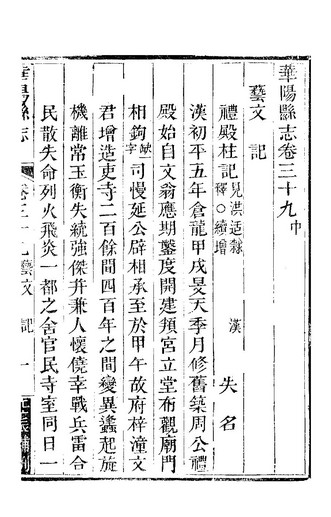 華陽縣志卷三十九中
藝文 記
禮殿柱記見洪适隸釋○續增 漢 失名
漢初平五年倉龍甲戌旻天季月修舊築周公禮
殿始自文翁應期鑿度開建頖宮立堂布觀廟門
相鉤缺字司慢延公辟相承至於甲午故府梓潼文
君增造吏寺二百餘間四百年之間變異蠭起旋
機離常玉衡失統強傑并兼人懷僥幸戰兵雷合
民散失命烈火飛炎一都之舍官民寺室同日一
華陽縣志 卷三十九 藝文 記 一